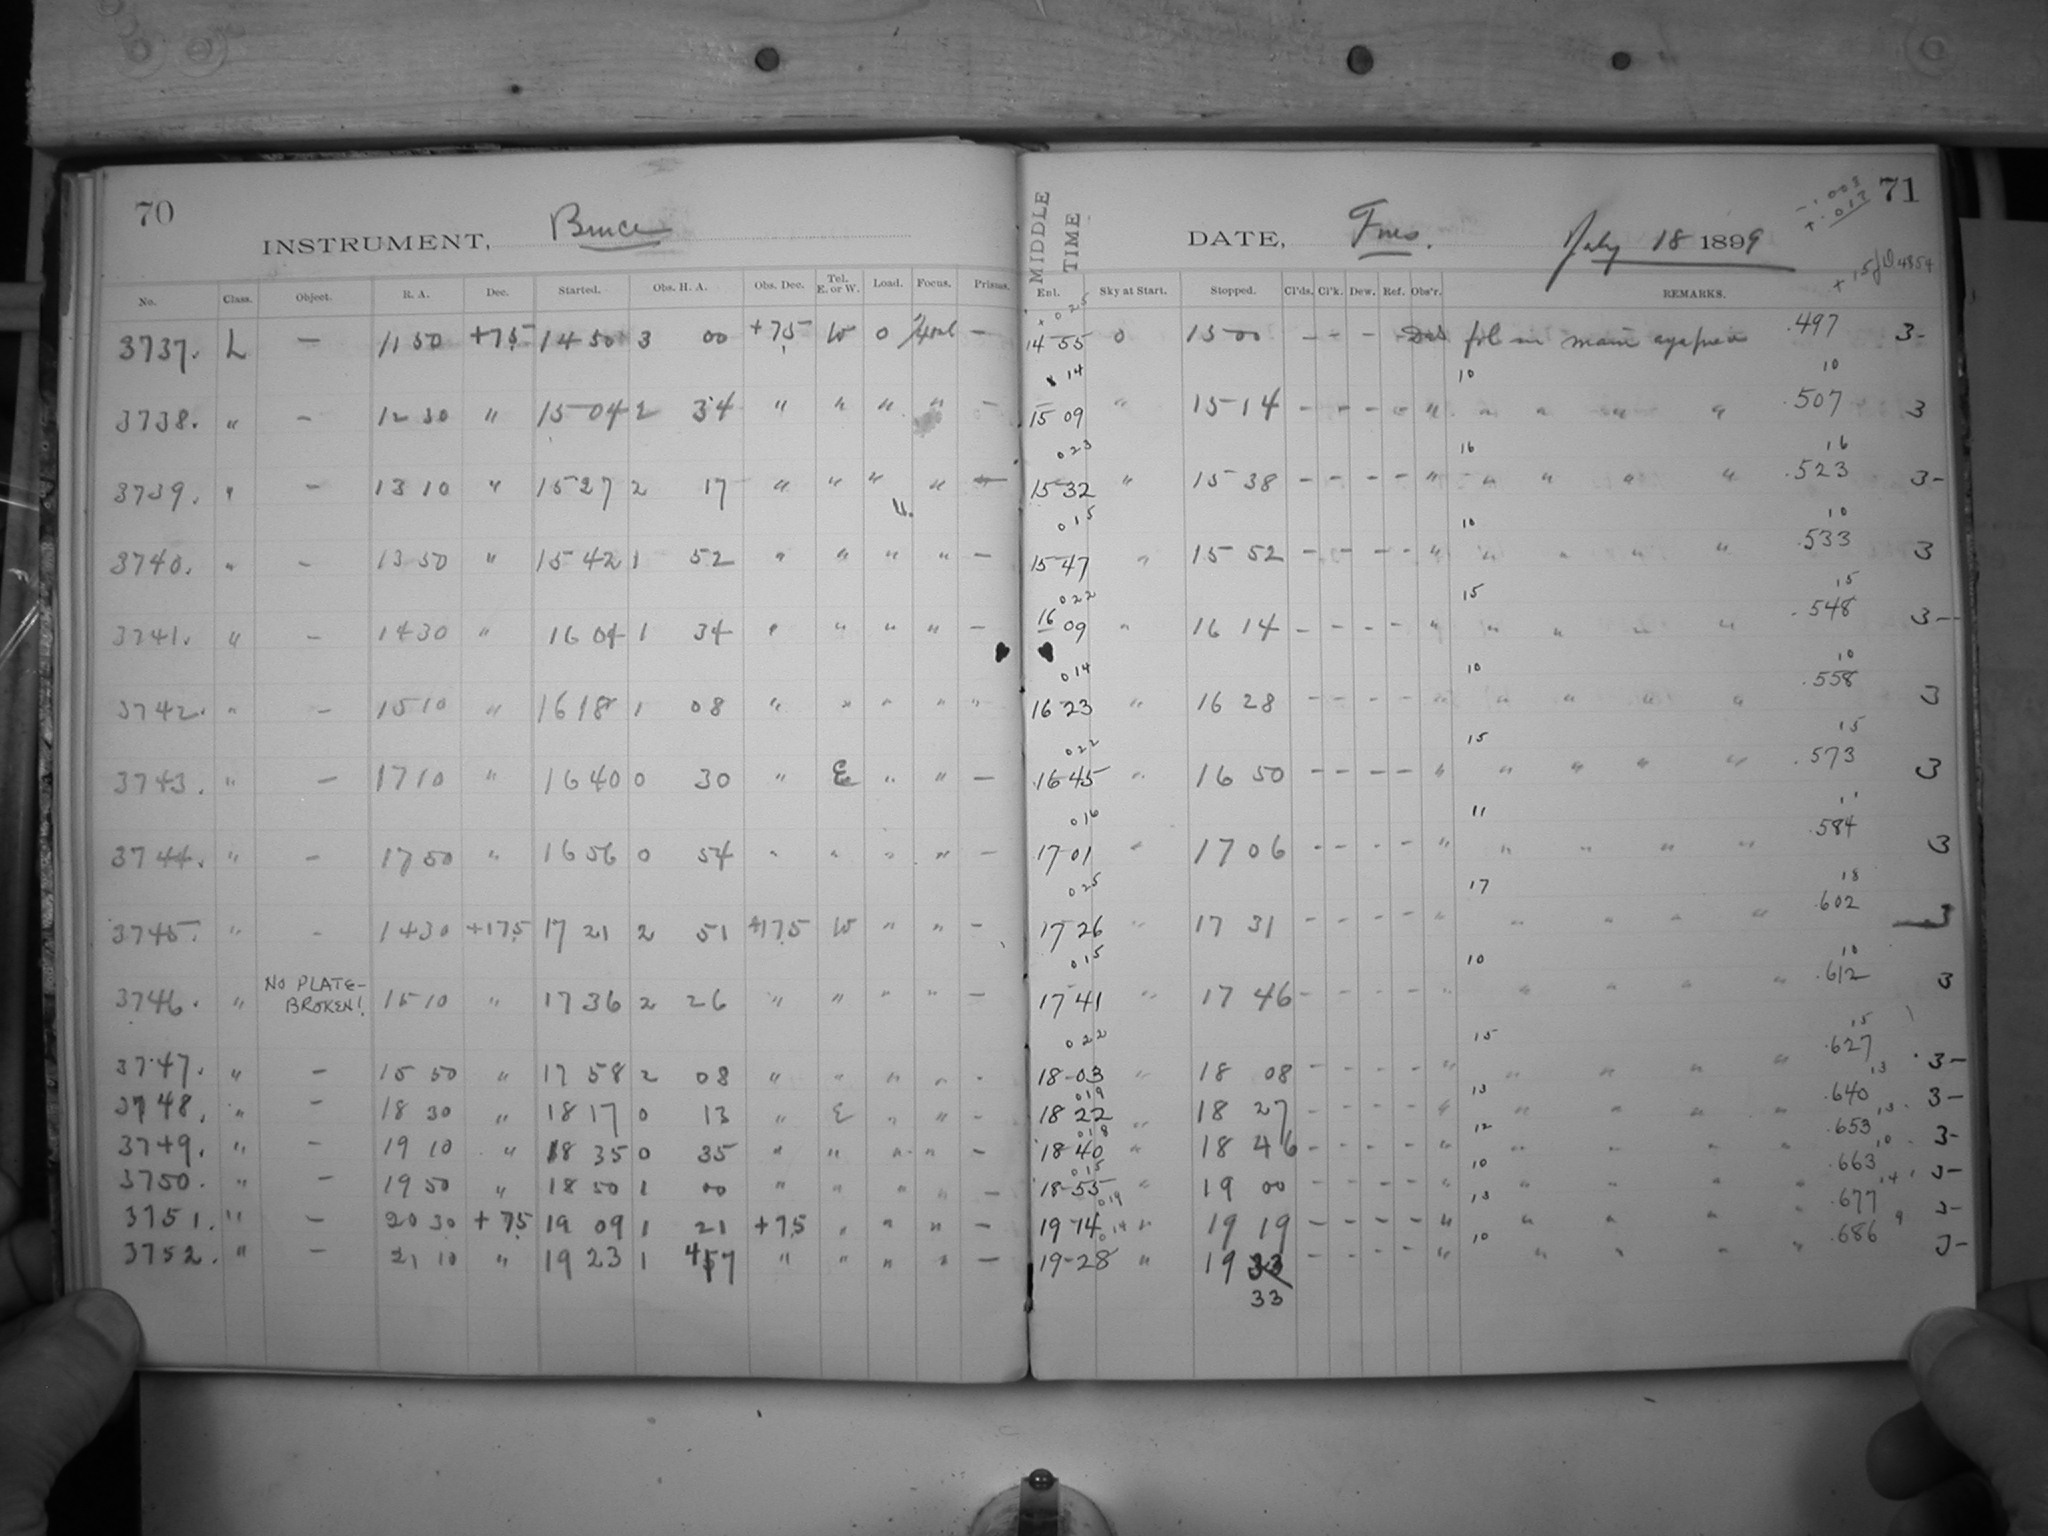 70
INSTRUMENT, Bruce
No. Class. Object. R. A. Dec. Started. Obs. H. A. Obs. Dec. Tel. E. or W. Load. Focus. Prisms.
3737. L — 11 50 +75 14 50 3 00 +75 W 0 —
3738. " — 12 30 " 15 04 2 34 " " " " —
3739. " — 13 10 " 15 27 2 17 " " " " —
3740. " — 13 50 " 15 42 1 52 " " " " —
3741. " — 14 30 " 16 04 1 34 " " " " —
3742. " — 15 10 " 16 18 1 08 " " " " "
3743. " — 17 10 " 16 40 0 30 " E " " —
3744. " — 17 50 " 16 56 0 54 " " " " —
3745. " — 14 30 +75 17 21 2 51 +75 W " " —
3746. " NO PLATE- BROKEN! 15 10 " 17 36 2 26 " " " " —
3747. " — 15 50 " 17 58 2 08 " " " " -
3748. " — 18 30 " 18 17 0 13 " E " " -
3749. " — 19 10 " 18 35 0 35 " " " " —
3750. " — 19 50 " 18 50 1 00 " " " " —
3751. " — 20 30 +75 19 09 1 21 +75 " " " —
3752. " — 21 10 " 19 23 1 " " " " —
71
MIDDLE TIME
DATE, July 18 1899
-.003
+.012
Enl. Sky at Start. Stopped. Cl'ds. Cl'k. Dew. Ref. Obs'r. REMARKS.
+025
14-55 0 15 00 — — — — .497 3-
14 10 10
15 09 " 15 14 - - - - " " " " " .507 3
023 16 16
15-32 " 15 38 - - - - " " " " " .523 3-
015 10 10
15-47 " 15 52 - - - - " " " " " .533 3
022 15 15
16 09 " 16 14 - - - - " " " " " .548 3—
014 10 10
16-23 " 16 28 - - - - " " " " " .558 3
022 15 15
16-45 " 16 50 - - - - " " " " " .573 3
016 11 11
17-01 " 17 06 - - - - " " " " " .584 3
025 17 18
17-26 " 17 31 - - - - " " " " " .602 3
015 10 10
17-41 " 17 46 - - - - " " " " " .612 3
022 15 15
18-03 " 18 08 - - - - " " " " " .627 3-
019 13 13
18 22 " 18 27 - - - - " " " " " .640 3-
018 12 13
18-40 " 18 46 - - - - " " " " " .653 3-
015 10 10
18-55 " 19 00 - - - - " " " " " .663 3-
019 13 14
19-14 " 19 19 - - - - " " " " " .677 3-
014 10 9
19-28 " 19 33 - - - - " " " " " .686 3-
33